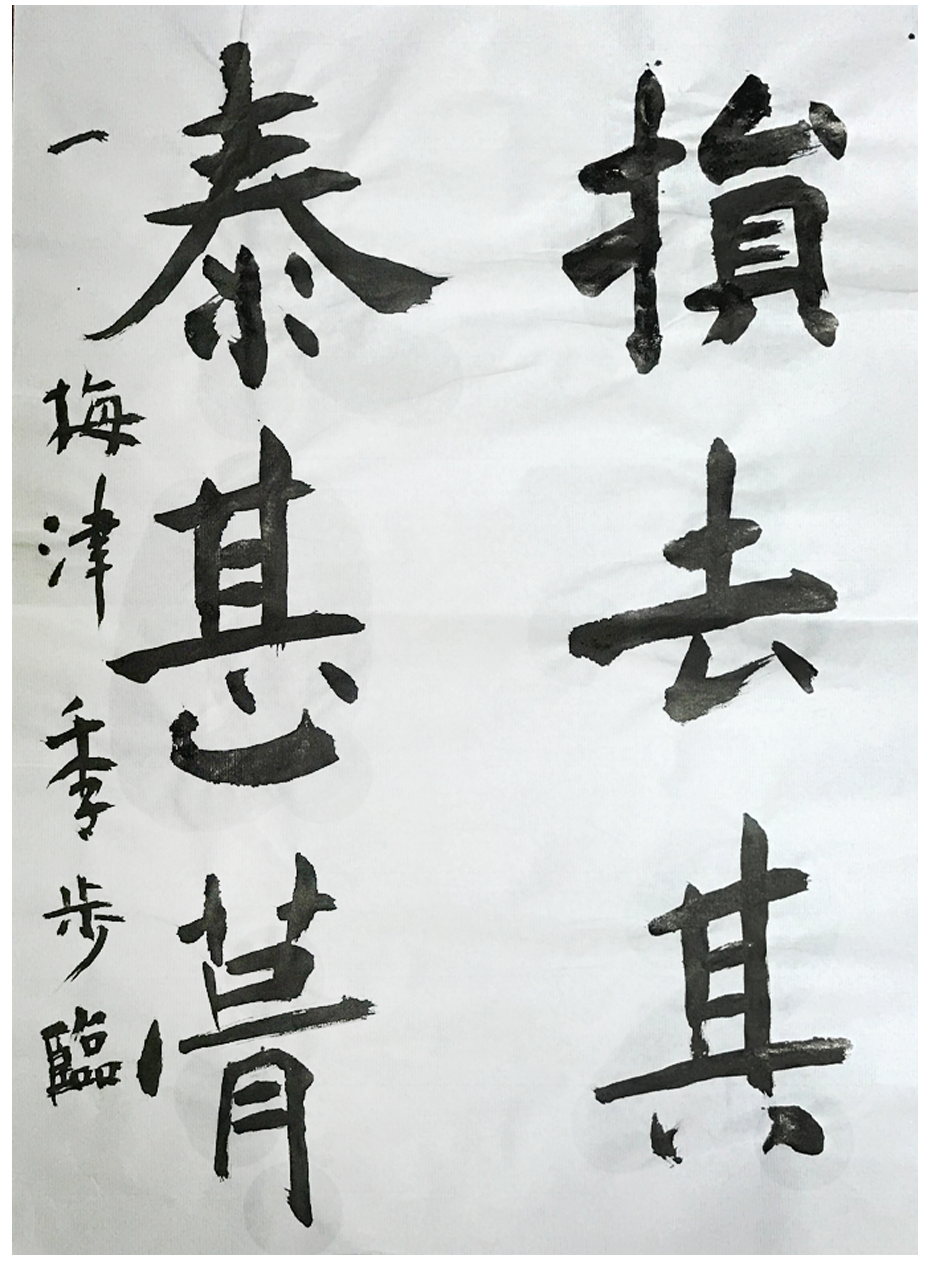 損去其
泰甚
一 梅津 季步臨